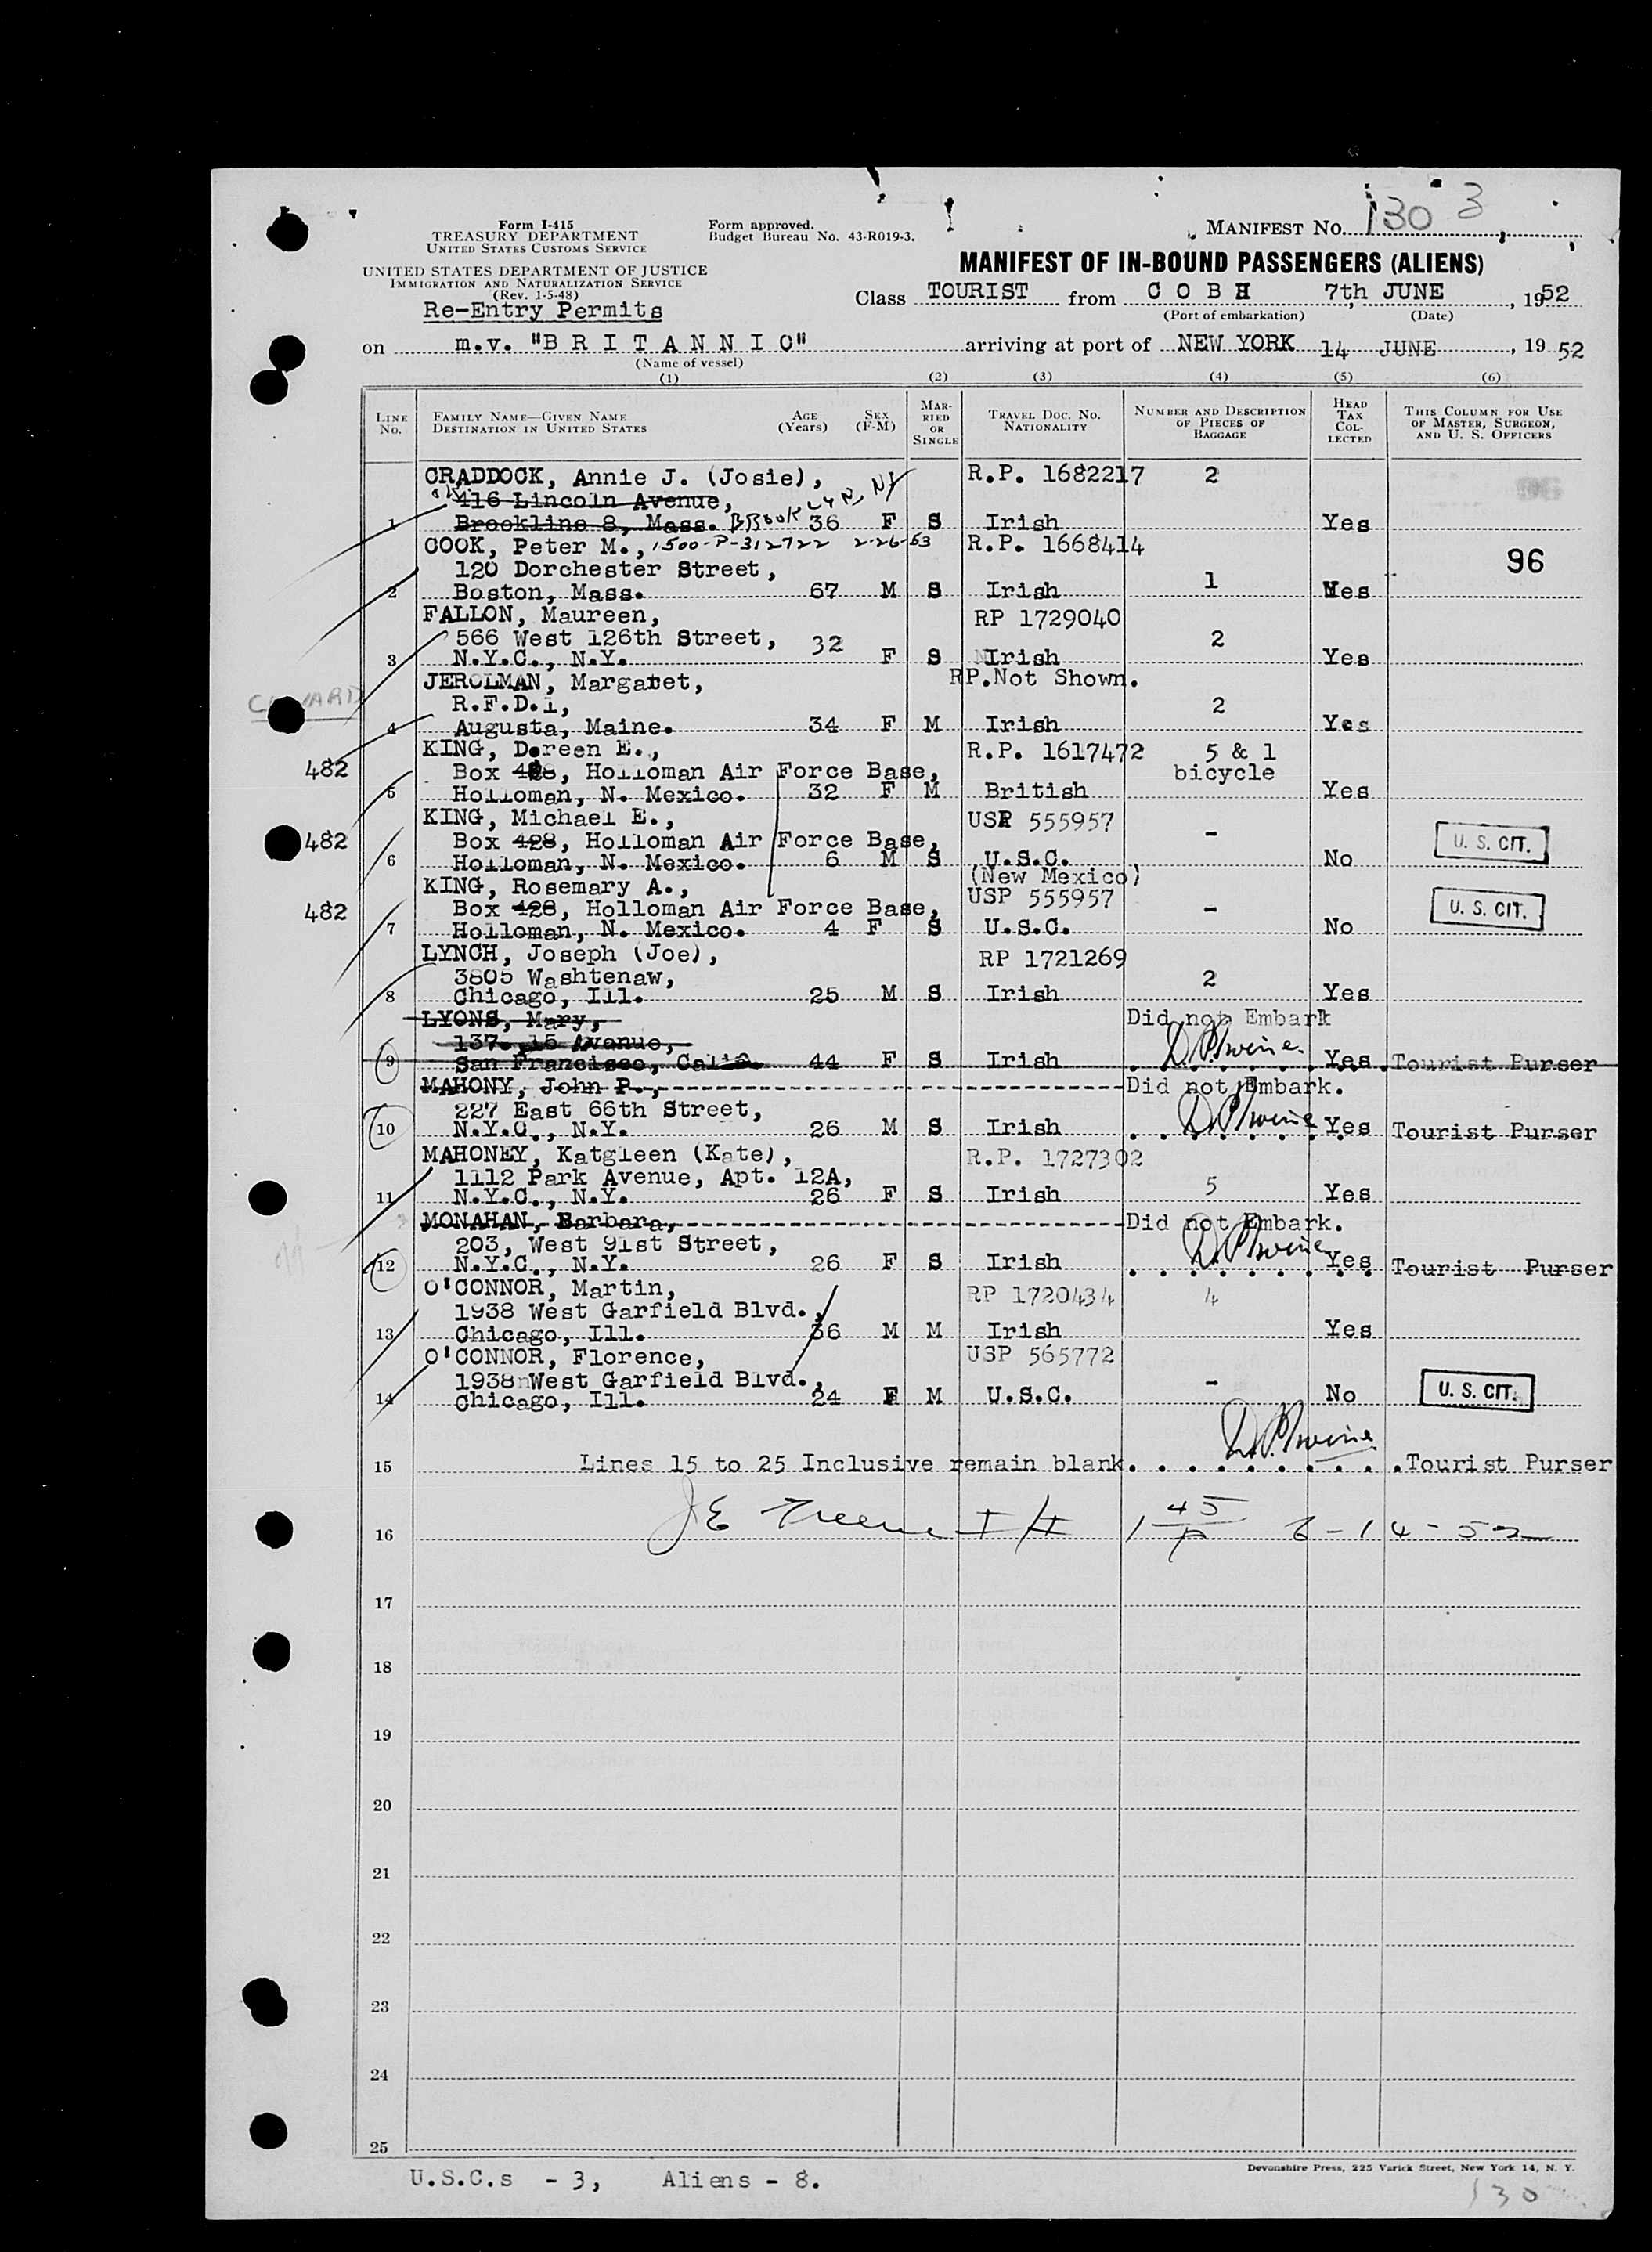 Form I-415
TREASURY DEPARTMENT
UNITED STATES CUSTOMS SERVICE
Form approved.
Budget Bureau No. 43-R019-3.
MANIFEST No. 130 3
UNITED STATES DEPARTMENT OF JUSTICE
IMMIGRATION AND NATURALIZATION SERVICE
(Rev. 1-5-48)
Re-Entry Permits
MANIFEST OF IN-BOUND PASSENGERS (ALIENS)
Class TOURIST from C O B H 7th JUNE, 1952
(Port of embarkation) (Date)
on m.v. "B R I T A N N I C" arriving at port of NEW YORK 14 JUNE, 19 52
(Name of vessel)
(1) (2) (3) (4) (5) (6)
LINE No. FAMILY NAME—GIVEN NAME DESTINATION IN UNITED STATES AGE (Years) SEX (F-M) MARRIED OR SINGLE TRAVEL DOC. No. NATIONALITY NUMBER AND DESCRIPTION OF PIECES OF BAGGAGE HEAD TAX COLLECTED THIS COLUMN FOR USE OF MASTER, SURGEON, AND U. S. OFFICERS
CRADDOCK, Annie J. (Josie), R.P. 1682217 2
416 Lincoln Avenue,
1 Brookline 8, Mass. BROOKLYN, NY 36 F S Irish Yes
COOK, Peter M., 1500-P-312722 2-26-53 R.P. 1668414
96
120 Dorchester Street, 1
2 Boston, Mass. 67 M S Irish Yes
FALLON, Maureen, RP 1729040
566 West 126th Street, 32 2
3 N.Y.C., N.Y. F S Irish Yes
JEROLMAN, Margaret, RP.Not Shown.
R.F.D.1, 2
4 Augusta, Maine. 34 F M Irish Yes
KING, Doreen E., R.P. 1617472 5 & 1
482 Box 428, Holloman Air Force Base, bicycle
5 Holloman, N. Mexico. 32 F M British Yes
KING, Michael E., USP 555957
482 Box 428, Holloman Air Force Base, - U. S. CIT.
6 Holloman, N. Mexico. 6 M S U.S.C. No
(New Mexico)
KING, Rosemary A., USP 555957
482 Box 428, Holloman Air Force Base, - U. S. CIT.
7 Holloman, N. Mexico. 4 F S U.S.C. No
LYNCH, Joseph (Joe), RP 1721269
3805 Washtenaw, 2
8 Chicago, Ill. 25 M S Irish Yes
LYONS, Mary, Did not Embark
137. 15 Avenue,
9 San Francisco, Calif. 44 F S Irish D.P.Irwine. Yes Tourist Purser
MAHONY, John P., Did not Embark.
227 East 66th Street,
10 N.Y.C., N.Y. 26 M S Irish D.P.Irwine Yes Tourist Purser
MAHONEY, Katgleen (Kate), R.P. 1727302
1112 Park Avenue, Apt. 12A, 5
11 N.Y.C., N.Y. 26 F S Irish Yes
MONAHAN, Barbara, Did not Embark.
203, West 91st Street,
12 N.Y.C., N.Y. 26 F S Irish D.P.Irwine Yes Tourist Purser
O'CONNOR, Martin, RP 1720434 4
1938 West Garfield Blvd.,
13 Chicago, Ill. 36 M M Irish Yes
O'CONNOR, Florence, USP 565772
1938 West Garfield Blvd., - U. S. CIT.
14 Chicago, Ill. 24 F M U.S.C. No
15 Lines 15 to 25 Inclusive remain blank. D.P.Irwine. Tourist Purser
16 1 45/P 6-14-52
17
18
19
20
21
22
23
24
25
Devonshire Press, 225 Varick Street, New York 14, N. Y.
U.S.C.s - 3, Aliens - 8.
130